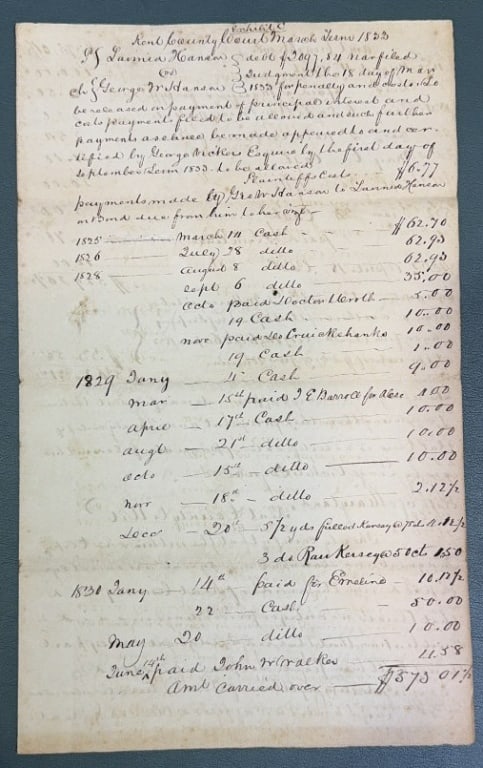 Exhibit C
Kent County Court March Term 1833
Larined Hanson debt $2097,84 nar filed
vs Judgment the 18 day of Mar
George W Hanson 1833 for penalty and costs to
be released on payment of principal interest and
costs payments filed to be allowed and such further
payments as since be made appeared to and cer-
tified by George Vickers Esquire by the first day of
September Term 1833 to be allowed
Plaintiffs Cost $6.77
payments made by Geo W Hanson to Larined Hanson
on Bond due from him to her
1825 March 14 Cash $62.70
1826 July 28 ditto 62.93
1828 August 8 ditto 62.93
sept 6 ditto 35,00
octo paid Docton Worth 5.00
19 Cash 10.00
novr paid Cruickshanks 10.00
19 Cash 1.00
1829 Jany Cash 9.00
Mar 15th paid J E Barroll for
April 17th Cash 10.00
augt 21st ditto 10.00
octo 15th ditto 10.00
Novr 18th ditto 2.12½
Decr 20th 5½ yds fulled Kersey
3 do Raw Kersey @ 50 cts 1,50
1830 Jany 14th paid for Emeline 10.12½
22 Cash 50.00
May 20 ditto 10.00
June 14th paid John W Walker 11.58
Amt carried over $373 01½